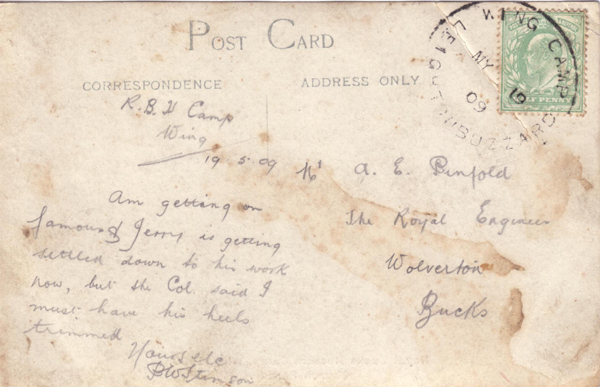 POST CARD
CORRESPONDENCE
ADDRESS ONLY
WING CAMP
LEIGHTON BUZZARD
MY 19
09
R.B.H Camp
Wing
19 5 09
Mr A. E. Penfold
The Royal Engineer
Wolverton
Bucks
Am getting on
famous & Jerry is getting
settled down to his work
now, but the Col. said I
must have his heels
trimmed
Yours etc